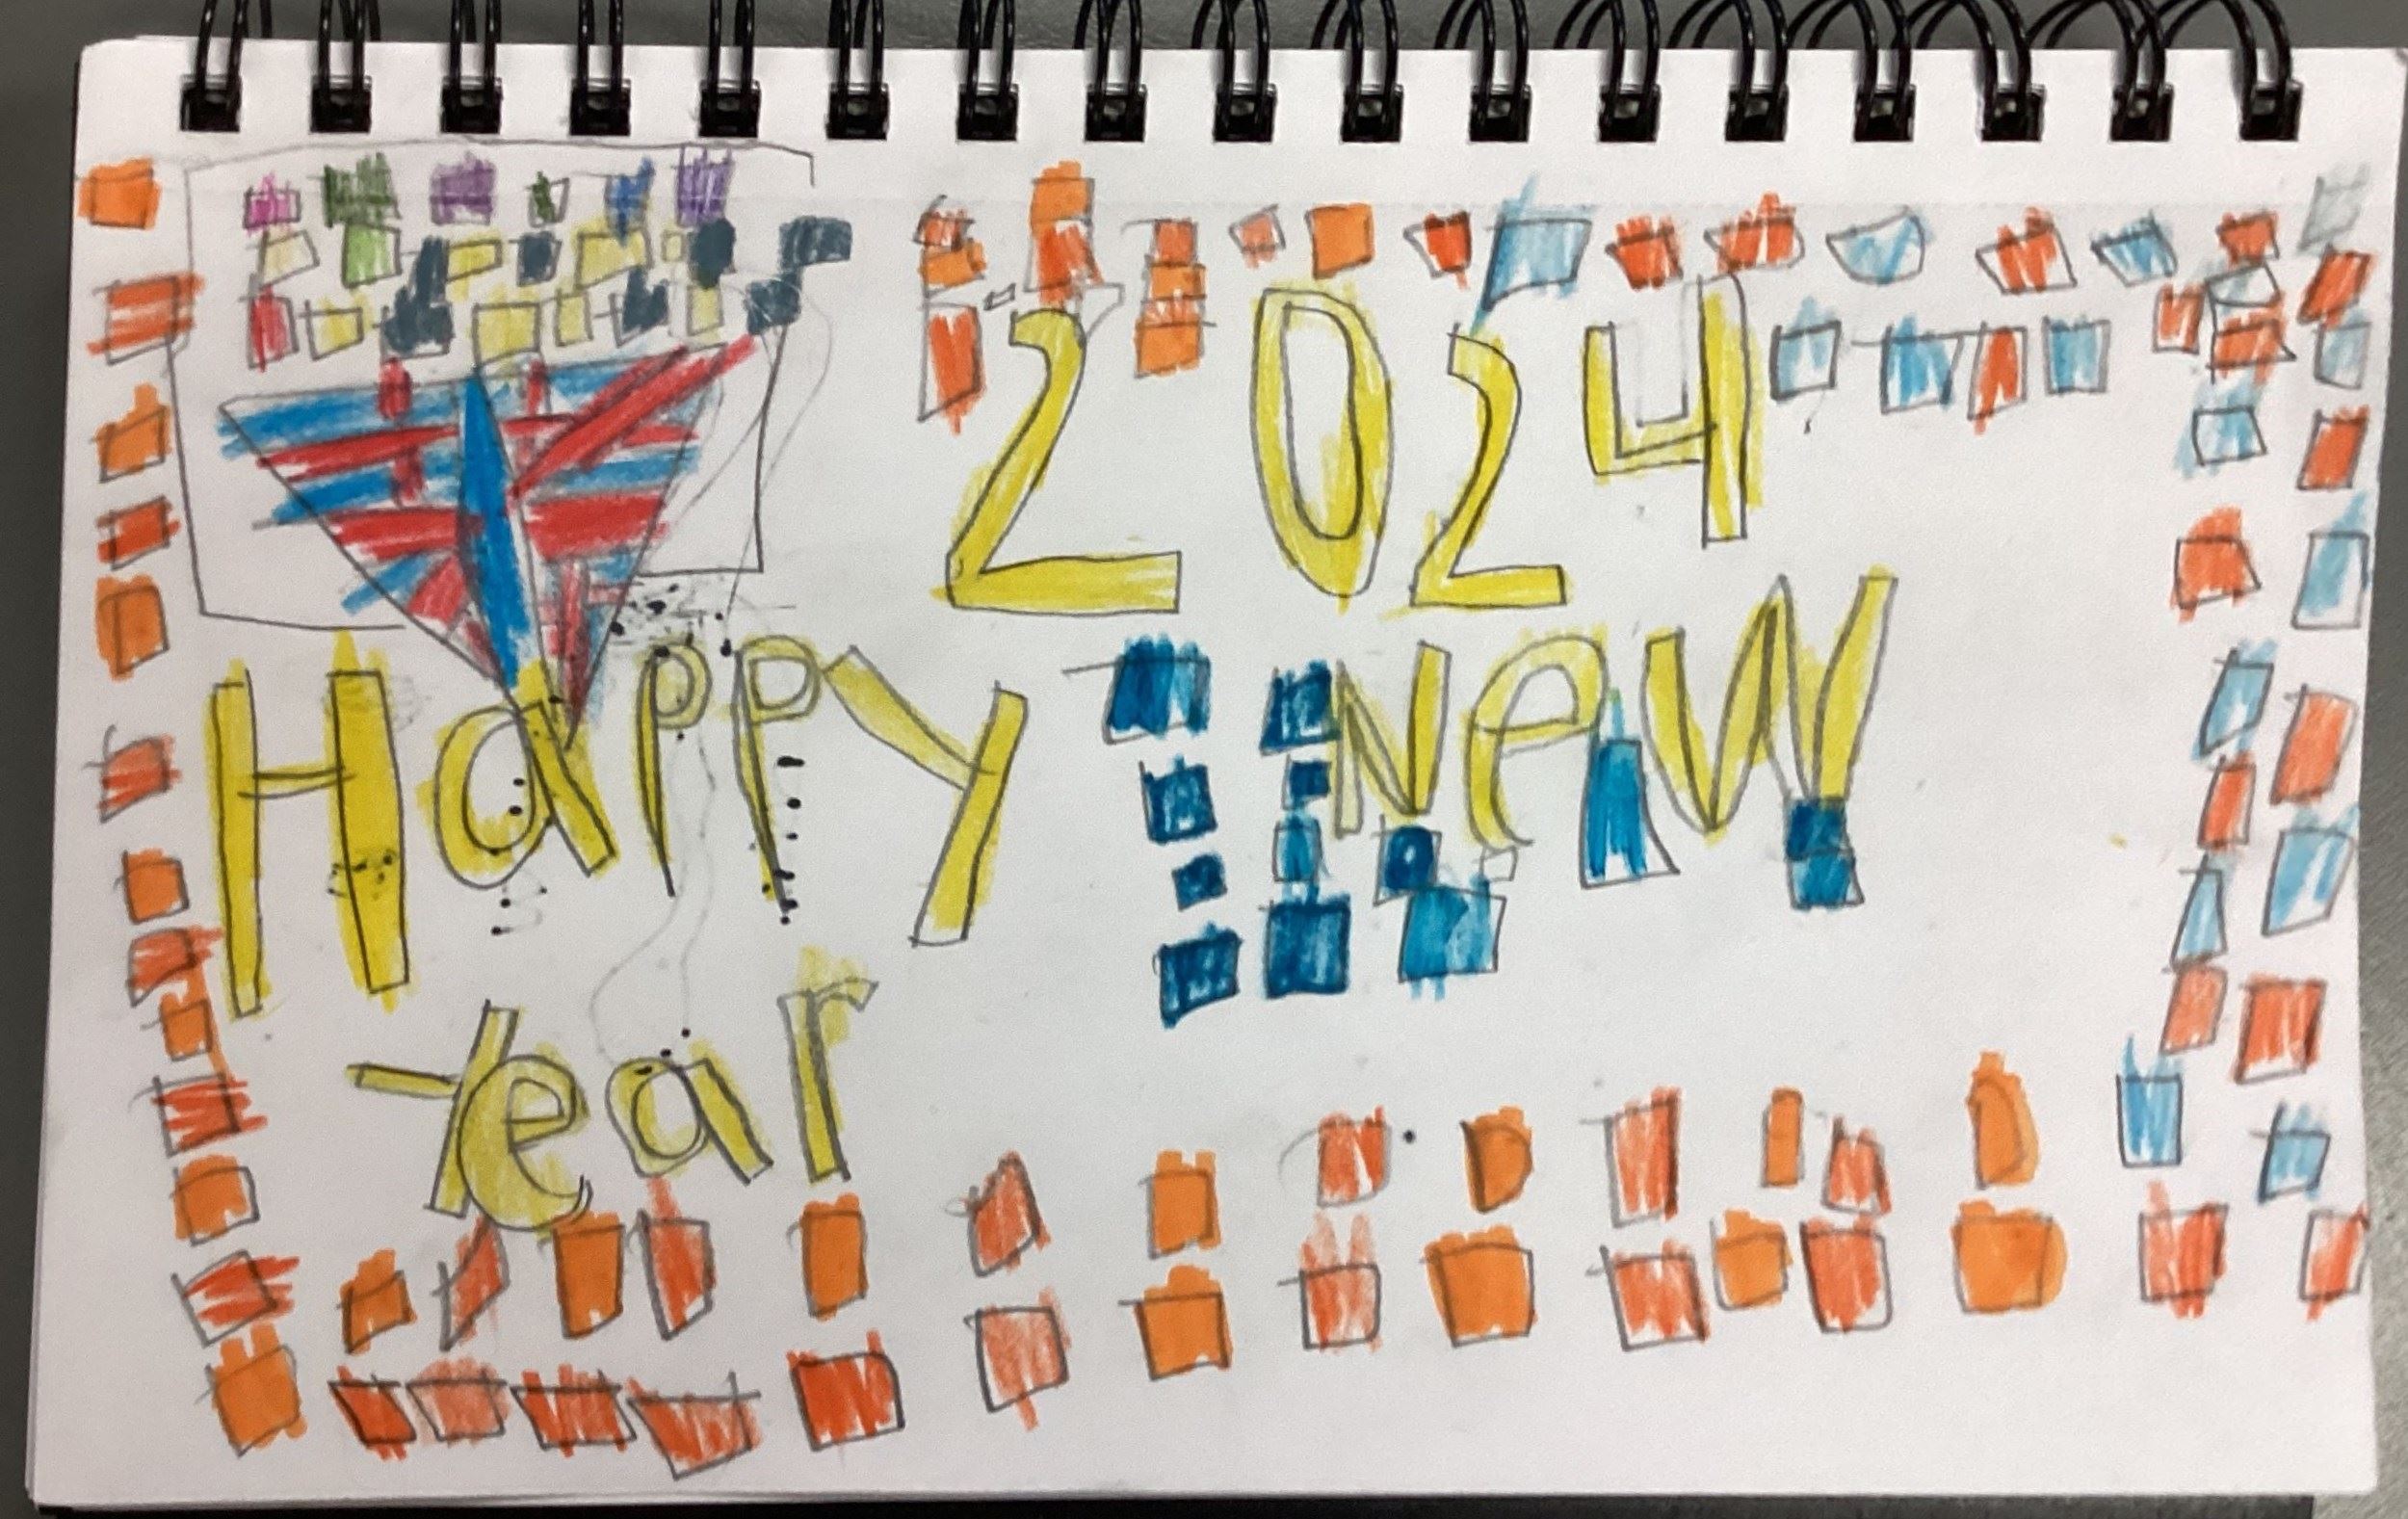 2024
Happy New
Year